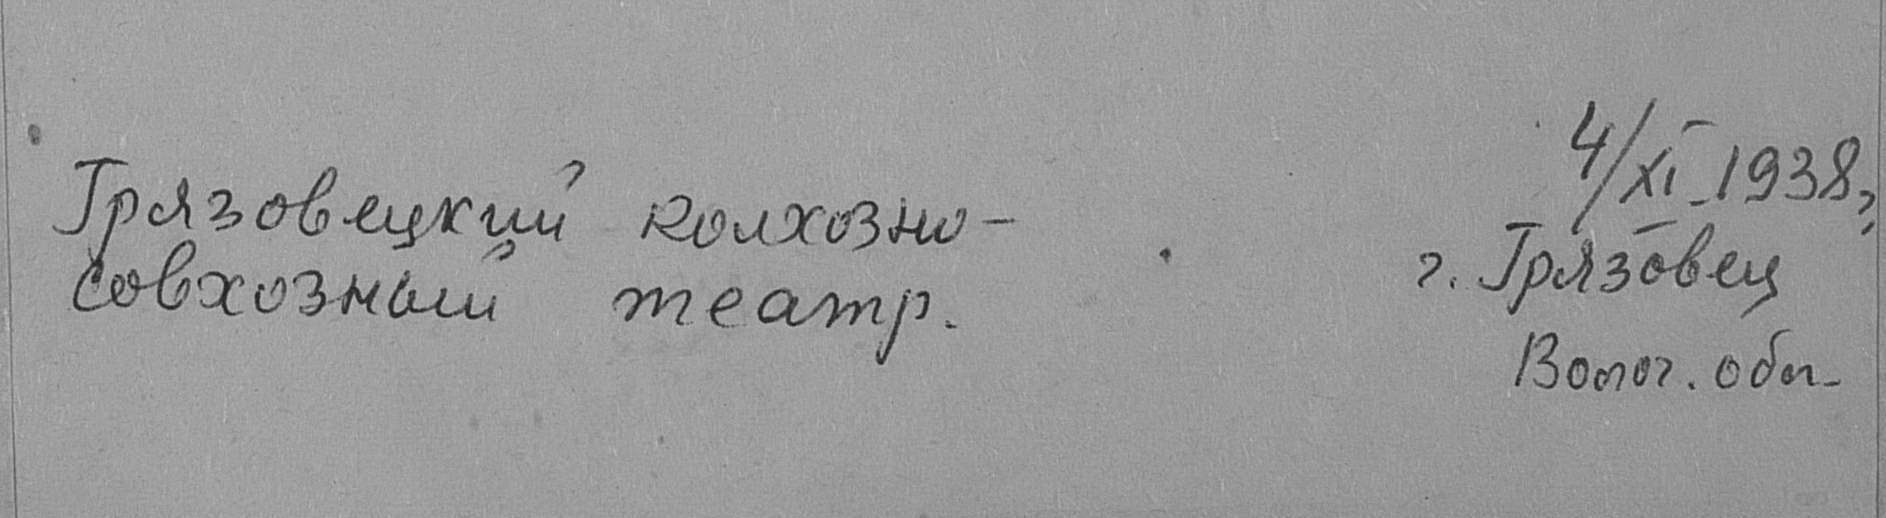 Грязовецкий колхозно-
совхозный театр.
4/XI-1938г.
г. Грязовец
Волог. обл.